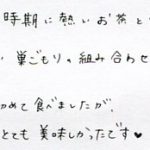 時期に熱いお茶と
巣ごもりの組み合わせ
初めて食べましたが、
とても美味しかったです♥